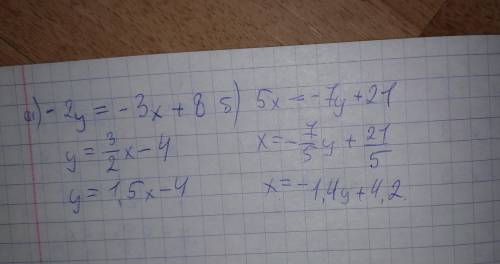 а) -2y = -3x + 8
y = 3/2 x - 4
y = 1,5x - 4
б) 5x = -7y + 21
x = - 7/5 y + 21/5
x = -1,4y + 4,2